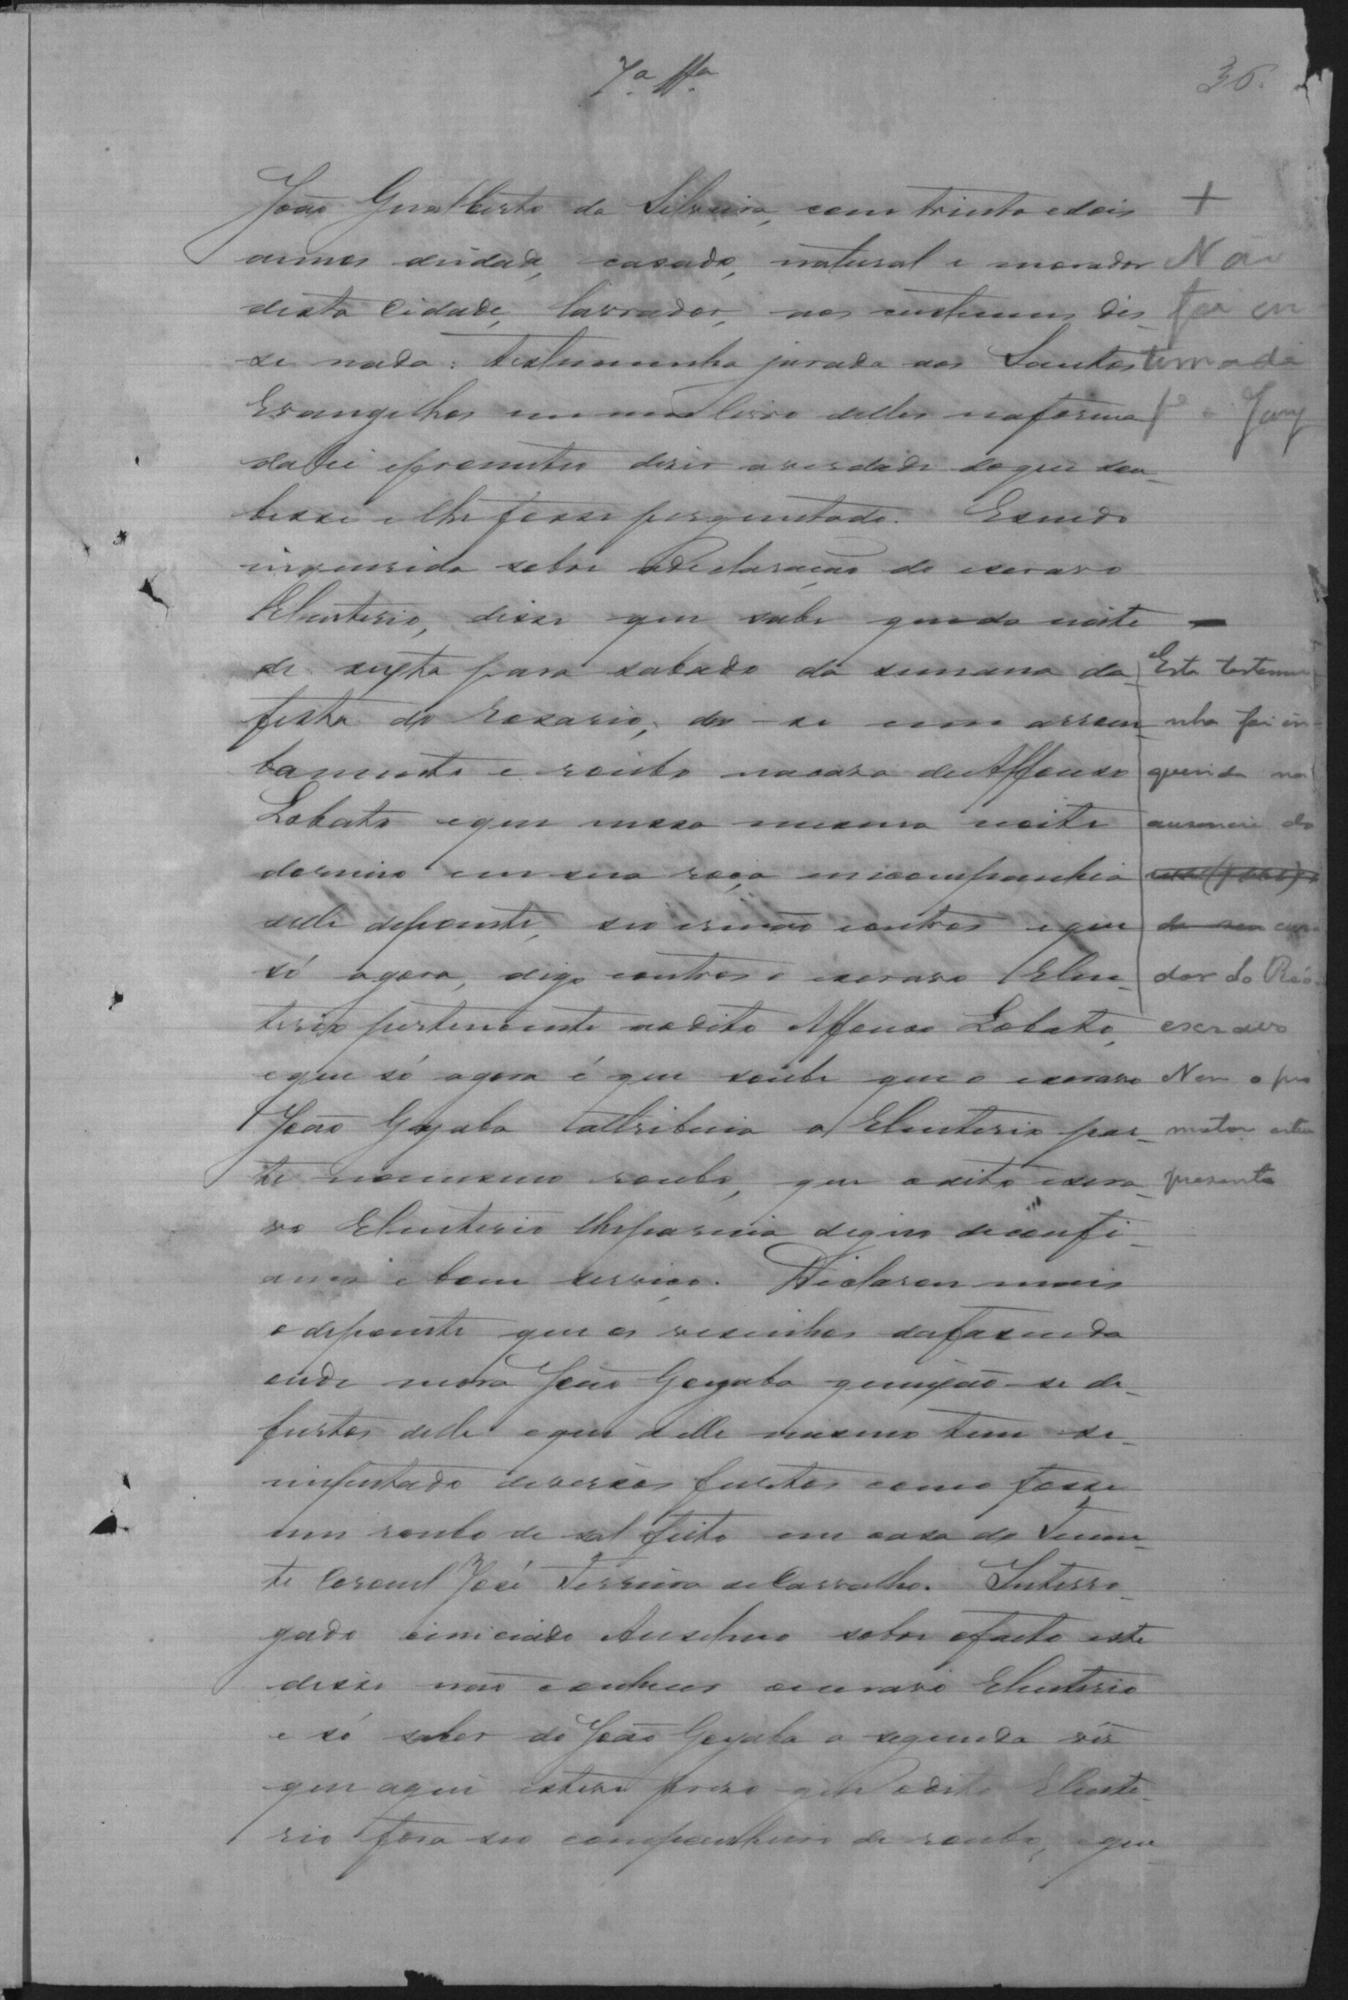 7.ª Tª
36.
João Gualberto da Silveira, com trinta e dois
annos deidade, casado, natural e morador
desta Cidade, lavrador, aos custumes dis-
se nada: testemunha jurada aos Santos
Evangelhos em um livro delles naforma
daLei eprometeu diser averdade doque sou-
besse e lhe fosse perguntado. Esendo
inquerido sobre adeclaração do escravo
Eleuterio, disse que sabe quenda noite
de sexta para sabado da semana da
festa do Rosario, deo-se um arrom-
bamento e roubo nacasa deAffonso
Lobato eque nessa mesma noite
dormio em sua roça emcompanhia
delle depoente, seo irmão eoutros eque
só agora, digo eoutros o escravo Eleu-
terio pertencente aodito Affonso Lobato,
eque só agora é que soube que o escravo
João Goyaba attribuia a Eleuterio par-
te nomesmo roubo, que odito escra-
vo Eleuterio lheparecia digno deconfi-
ança e bom serviço. Declarou mais
odepoente que os vesinhos dafasenda
onde mora João Goyaba queixão-se de
furtos delle eque delle mesmo tem se
imputado diversos furtos como fosse
um roubo de sal feito em casa do Tenen-
te Coronel José Ferreira deCarvalho. Interro-
gado oiniciado Anselmo sobre ofacto este
disse não conhecer oescravo Eleuterio
e só saber de João Goyaba a segunda vês
que aqui esteve preso que odito Eleute-
rio fora seo companheiro de roubo, eque
+
Não
foi in
timada
pª o Jury
Esta testemu
nha foi in-
querida na
ausencia do
cura-
dor do Réo
escravo
Nem o pro
motor esteve
presente